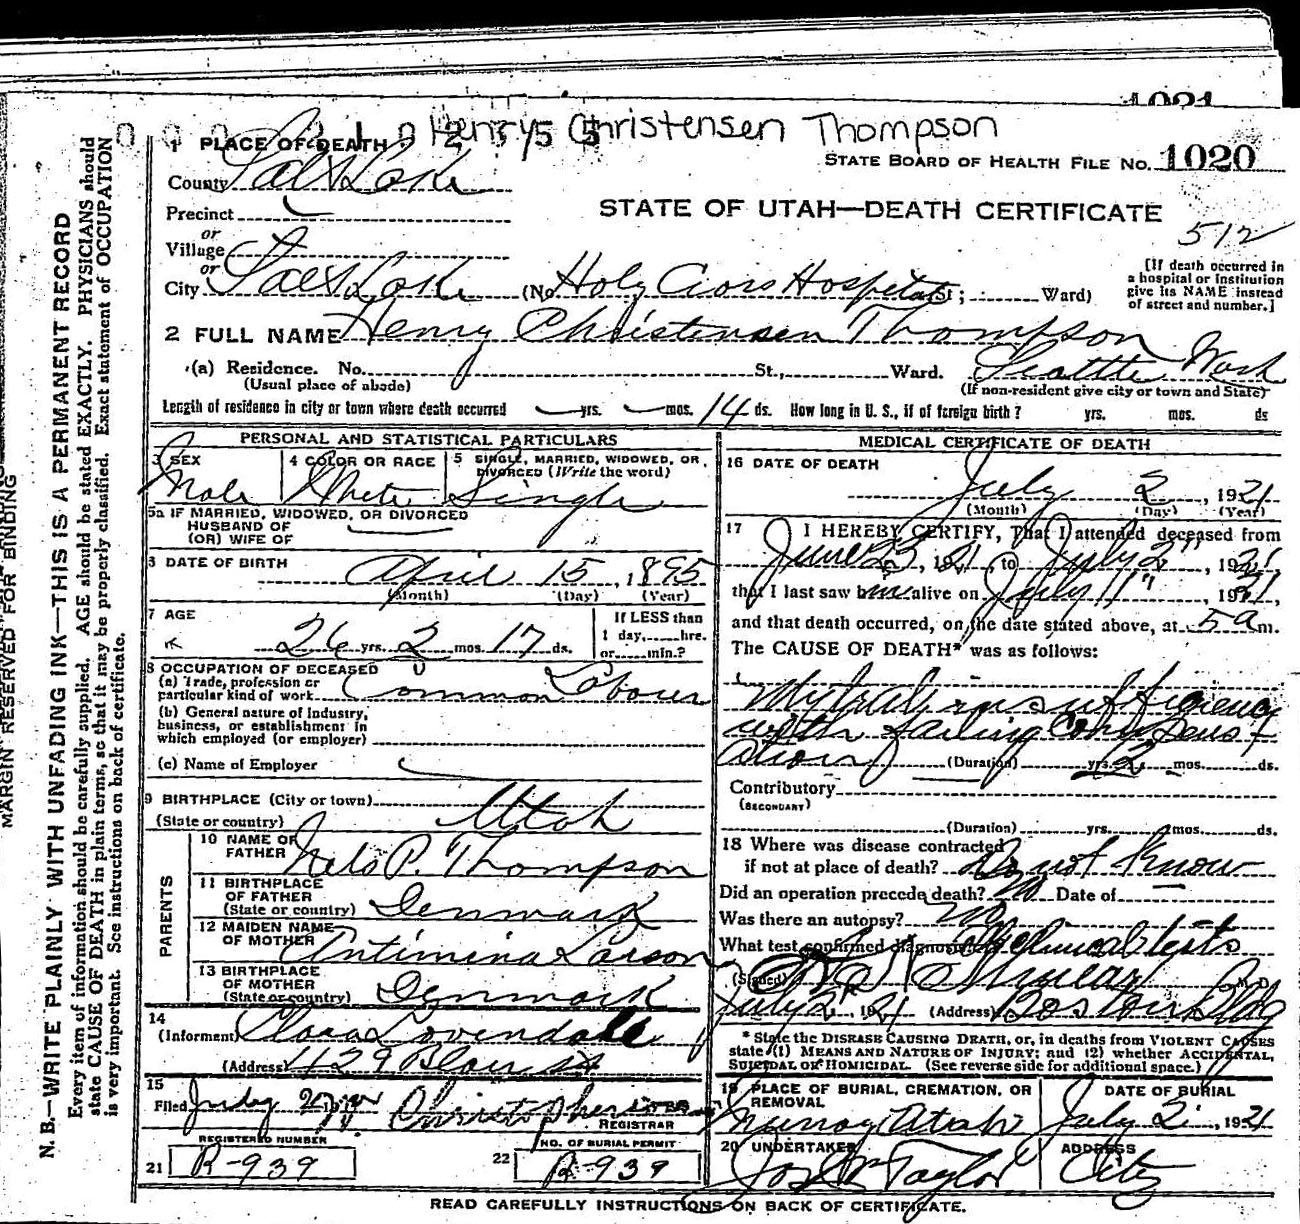 1021
Henry Christensen Thompson
1 PLACE OF DEARH
STATE BOARD OF HEALTH FILE NO. 1020
County Salt Lake
Precinct
STATE OF UTAH—DEATH CERTIFICATE
or
Village
512
or
City Salt Lake (No. Holy Cross Hospital St; Ward)
[If death occurred in
a hospital or institution
give its NAME instead
of street and number.]
2 FULL NAME Henry Christensen Thompson
(a) Residence. No. St., Ward. Seattle Wash
(Usual place of abode) (If non-resident give city or town and State)
Length of residence in city or town where death occurred yrs. mos. 14 ds. How long in U. S., if of foreign birth? yrs. mos. ds
PERSONAL AND STATISTICAL PARTICULARS
3 SEX
Male
4 COLOR OR RACE
White
5 SINGLE, MARRIED, WIDOWED, OR
DIVORCED (Write the word)
Single
5a IF MARRIED, WIDOWED, OR DIVORCED
HUSBAND OF
(OR) WIFE OF
6 DATE OF BIRTH
April 15, 1895
(Month) (Day) (Year)
7 AGE
26 yrs. 2 mos. 17 ds.
If LESS than
1 day, hrs.
or min.?
8 OCCUPATION OF DECEASED
(a) Trade, profession or
particular kind of work Common Labourer
(b) General nature of industry,
business, or establishment in
which employed (or employer)
(c) Name of Employer
9 BIRTHPLACE (City or town)
(State or country) Utah
PARENTS
10 NAME OF
FATHER Nels P. Thompson
11 BIRTHPLACE
OF FATHER
(State or country) Denmark
12 MAIDEN NAME
OF MOTHER Antimina Larson
13 BIRTHPLACE
OF MOTHER
(State or country) Denmark
14
(Informant) Clara Lovendale
(Address) 1129 Blair St
15
Filed July 2 REGISTRAR
REGISTERED NUMBER
21 R-939
NO. OF BURIAL PERMIT
22 R-939
MEDICAL CERTIFICATE OF DEATH
16 DATE OF DEATH
July 2, 1921
(Month) (Day) (Year)
17 I HEREBY CERTIFY, That I attended deceased from
June 23, 1921, to July 2", 1921,
that I last saw him alive on July 1", 1921,
and that death occurred, on the date stated above, at 5 a m.
The CAUSE OF DEATH* was as follows:
Mytral insufficiency
with failing compens-
ation (Duration) yrs. 2 mos. ds.
Contributory
(SECONDARY)
(Duration) yrs. mos. ds.
18 Where was disease contracted
if not at place of death? Do not Know
Did an operation precede death? no Date of
Was there an autopsy? no
What test confirmed diagnosis? Clinical tests
(Signed) M. D.
July 2, 1921 (Address) Boston Bldg
* State the DISEASE CAUSING DEATH, or, in deaths from VIOLENT CAUSES
state (1) MEANS AND NATURE OF INJURY; and (2) whether ACCIDENTAL,
SUICIDAL OR HOMICIDAL. (See reverse side for additional space.)
19 PLACE OF BURIAL, CREMATION, OR
REMOVAL
Murray Utah
DATE OF BURIAL
July 2, 1921
20 UNDERTAKER
Jos Wm Taylor
ADDRESS
City
READ CAREFULLY INSTRUCTIONS ON BACK OF CERTIFICATE.
MARGIN RESERVED FOR BINDING
N. B.—WRITE PLAINLY WITH UNFADING INK—THIS IS A PERMANENT RECORD
Every item of information should be carefully supplied. AGE should be stated EXACTLY. PHYSICIANS should
state CAUSE OF DEATH in plain terms, so that it may be properly classified. Exact statement of OCCUPATION
is very important. See instructions on back of certificate.